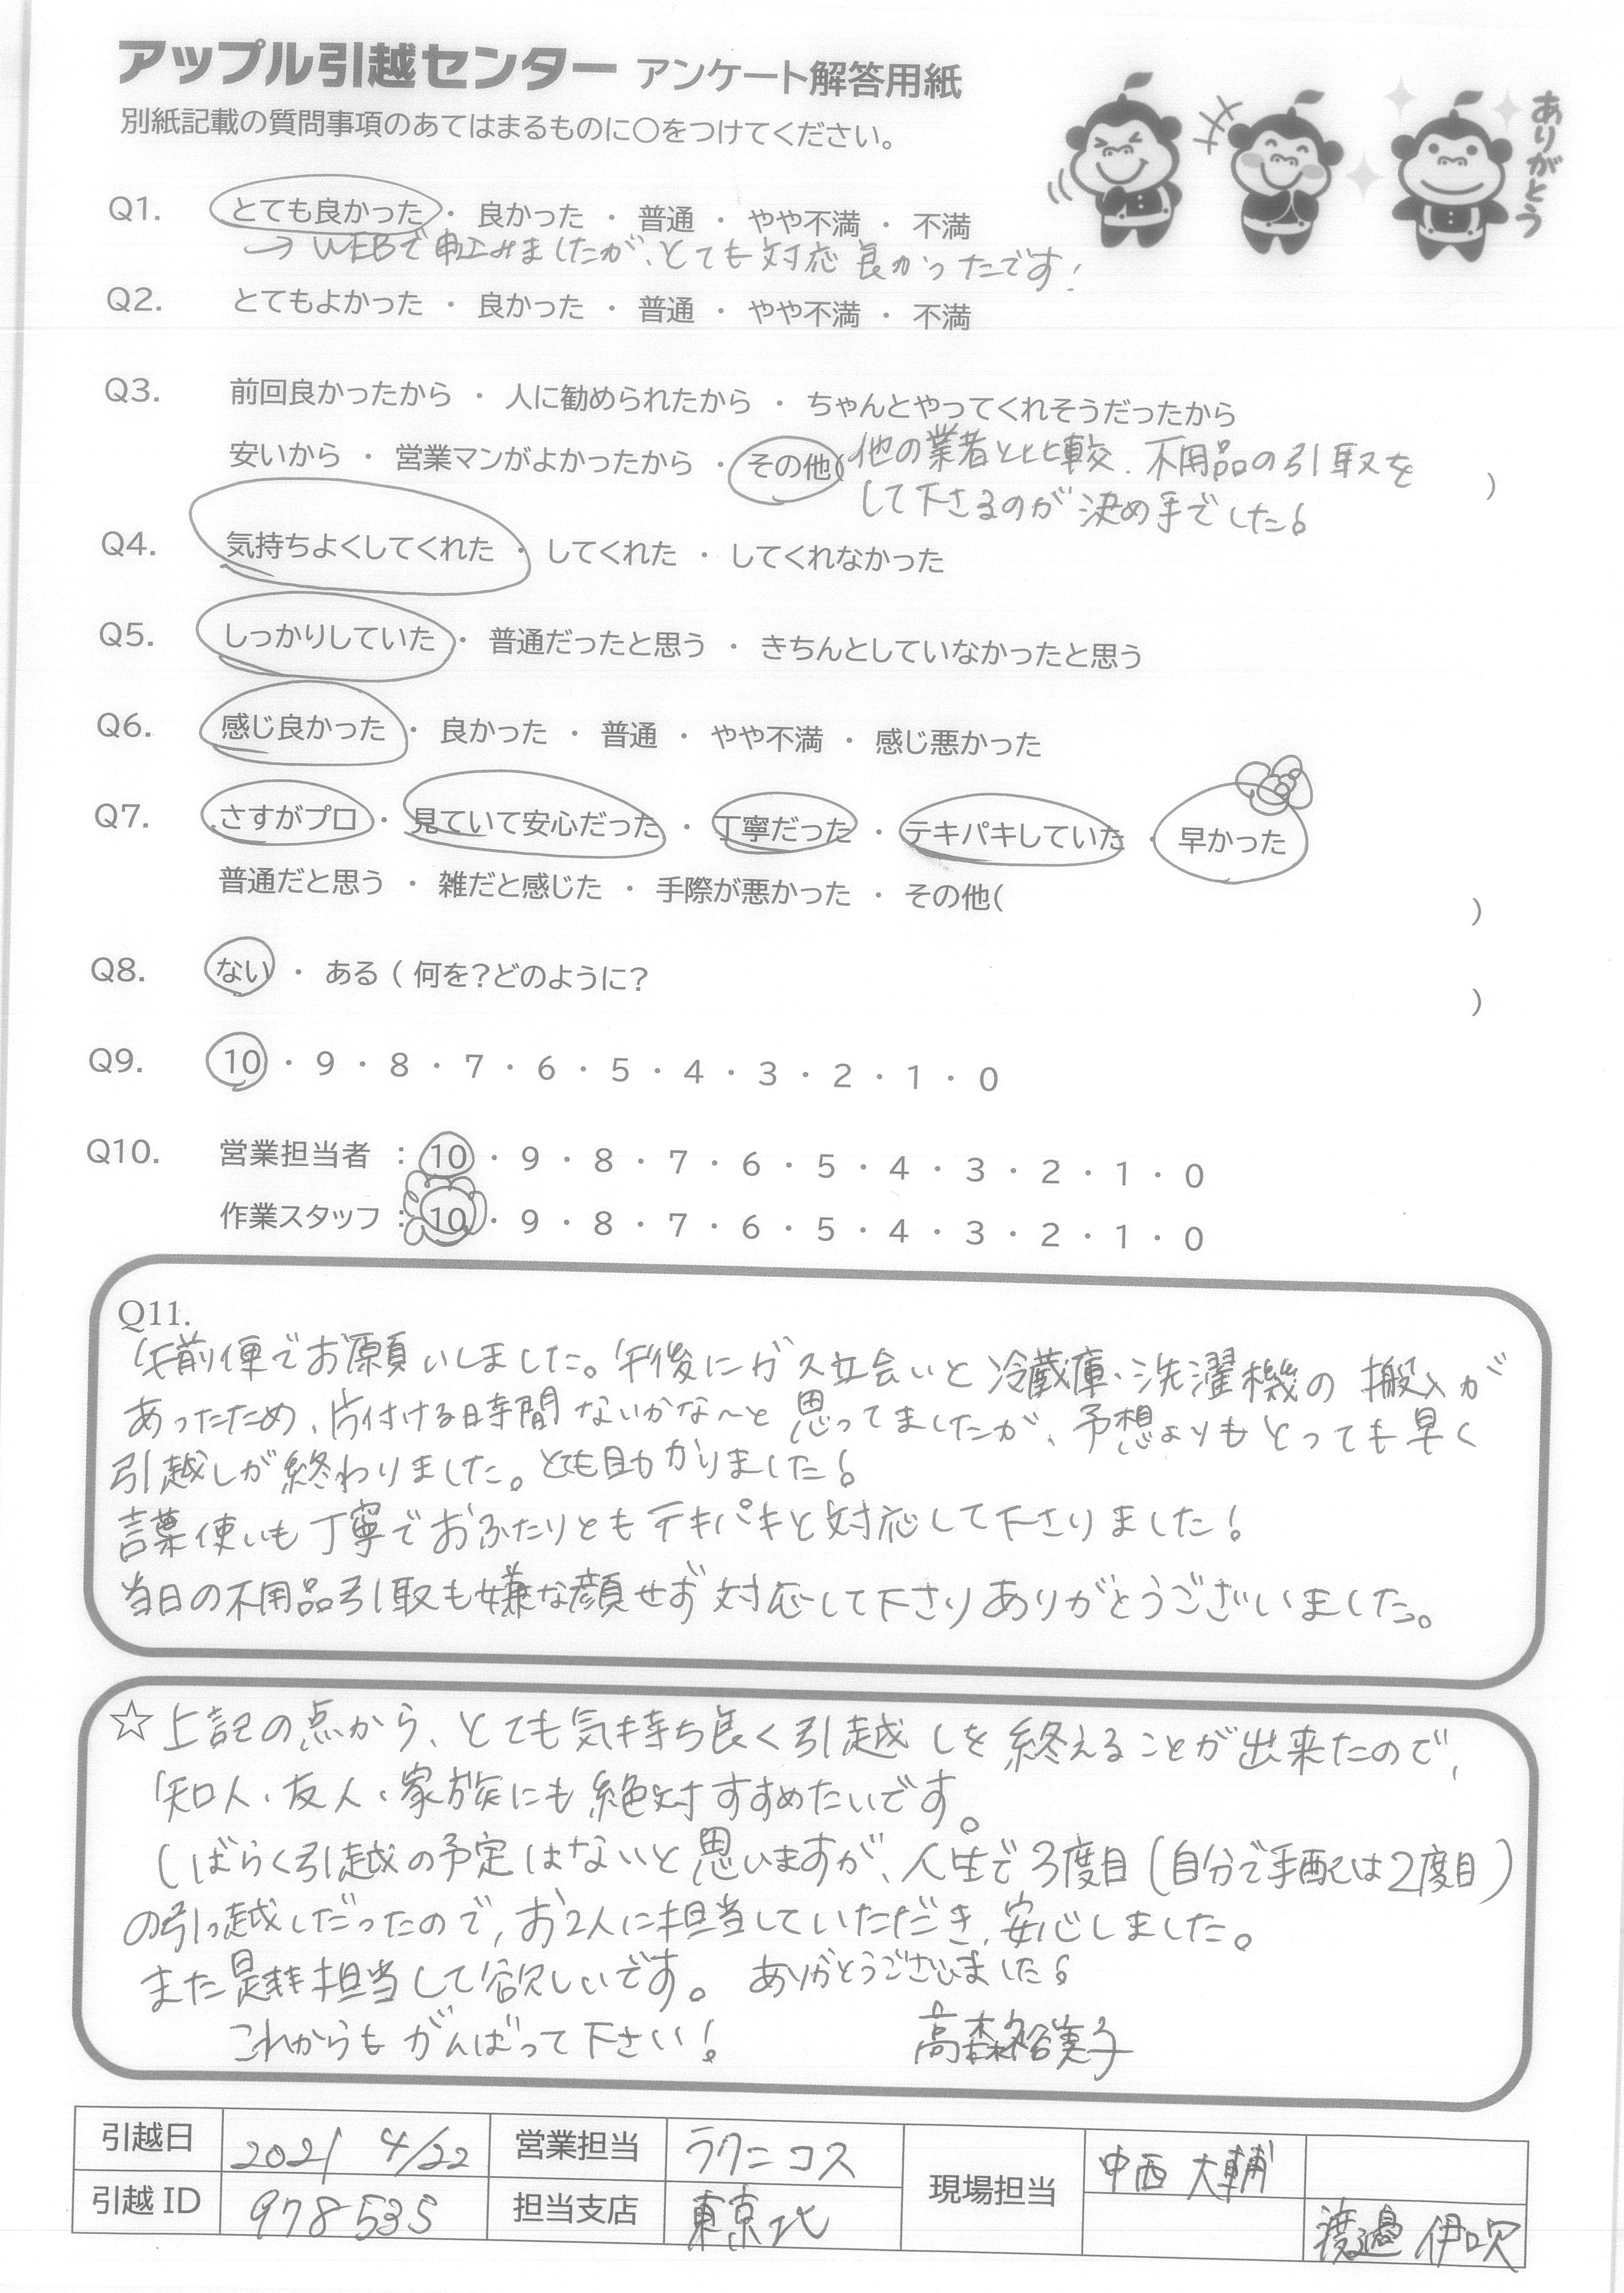 アップル引越センター アンケート解答用紙
別紙記載の質問事項のあてはまるものに○をつけてください。
ありがとう
Q1. とても良かった ・ 良かった ・ 普通 ・ やや不満 ・ 不満
→ WEBで申込みましたが、とても対応良かったです!
Q2. とてもよかった ・ 良かった ・ 普通 ・ やや不満 ・ 不満
Q3. 前回良かったから ・ 人に勧められたから ・ ちゃんとやってくれそうだったから
安いから ・ 営業マンがよかったから ・ その他( 他の業者と比較、不用品の引取を )
して下さるのが決め手でした!
Q4. 気持ちよくしてくれた ・ してくれた ・ してくれなかった
Q5. しっかりしていた ・ 普通だったと思う ・ きちんとしていなかったと思う
Q6. 感じ良かった ・ 良かった ・ 普通 ・ やや不満 ・ 感じ悪かった
Q7. さすがプロ ・ 見ていて安心だった ・ 丁寧だった ・ テキパキしていた ・ 早かった
普通だと思う ・ 雑だと感じた ・ 手際が悪かった ・ その他( )
Q8. ない ・ ある ( 何を?どのように? )
Q9. 10 ・ 9 ・ 8 ・ 7 ・ 6 ・ 5 ・ 4 ・ 3 ・ 2 ・ 1 ・ 0
Q10. 営業担当者 : 10 ・ 9 ・ 8 ・ 7 ・ 6 ・ 5 ・ 4 ・ 3 ・ 2 ・ 1 ・ 0
作業スタッフ : 10 ・ 9 ・ 8 ・ 7 ・ 6 ・ 5 ・ 4 ・ 3 ・ 2 ・ 1 ・ 0
Q11.
午前便でお願いしました。午後にガス立会いと冷蔵庫・洗濯機の搬入が
あったため、片付ける時間ないかな〜と思ってましたが、予想よりもとっても早く
引越しが終わりました。とても助かりました!
言葉使いも丁寧でおふたりともテキパキと対応して下さりました!
当日の不用品引取も嫌な顔せず対応して下さりありがとうございました。
☆上記の点から、とても気持ち良く引越しを終えることが出来たので、
知人、友人、家族にも絶対すすめたいです。
しばらく引越の予定はないと思いますが、人生で3度目(自分で手配は2度目)
の引っ越しだったので、お2人に担当していただき、安心しました。
また是非担当して欲しいです。 ありがとうございました!
これからもがんばって下さい! 高森裕美子
引越日 2021 4/22 営業担当 ラクニコス 現場担当 中西 大輔
引越ID 978535 担当支店 東京北 渡邉 伊吹